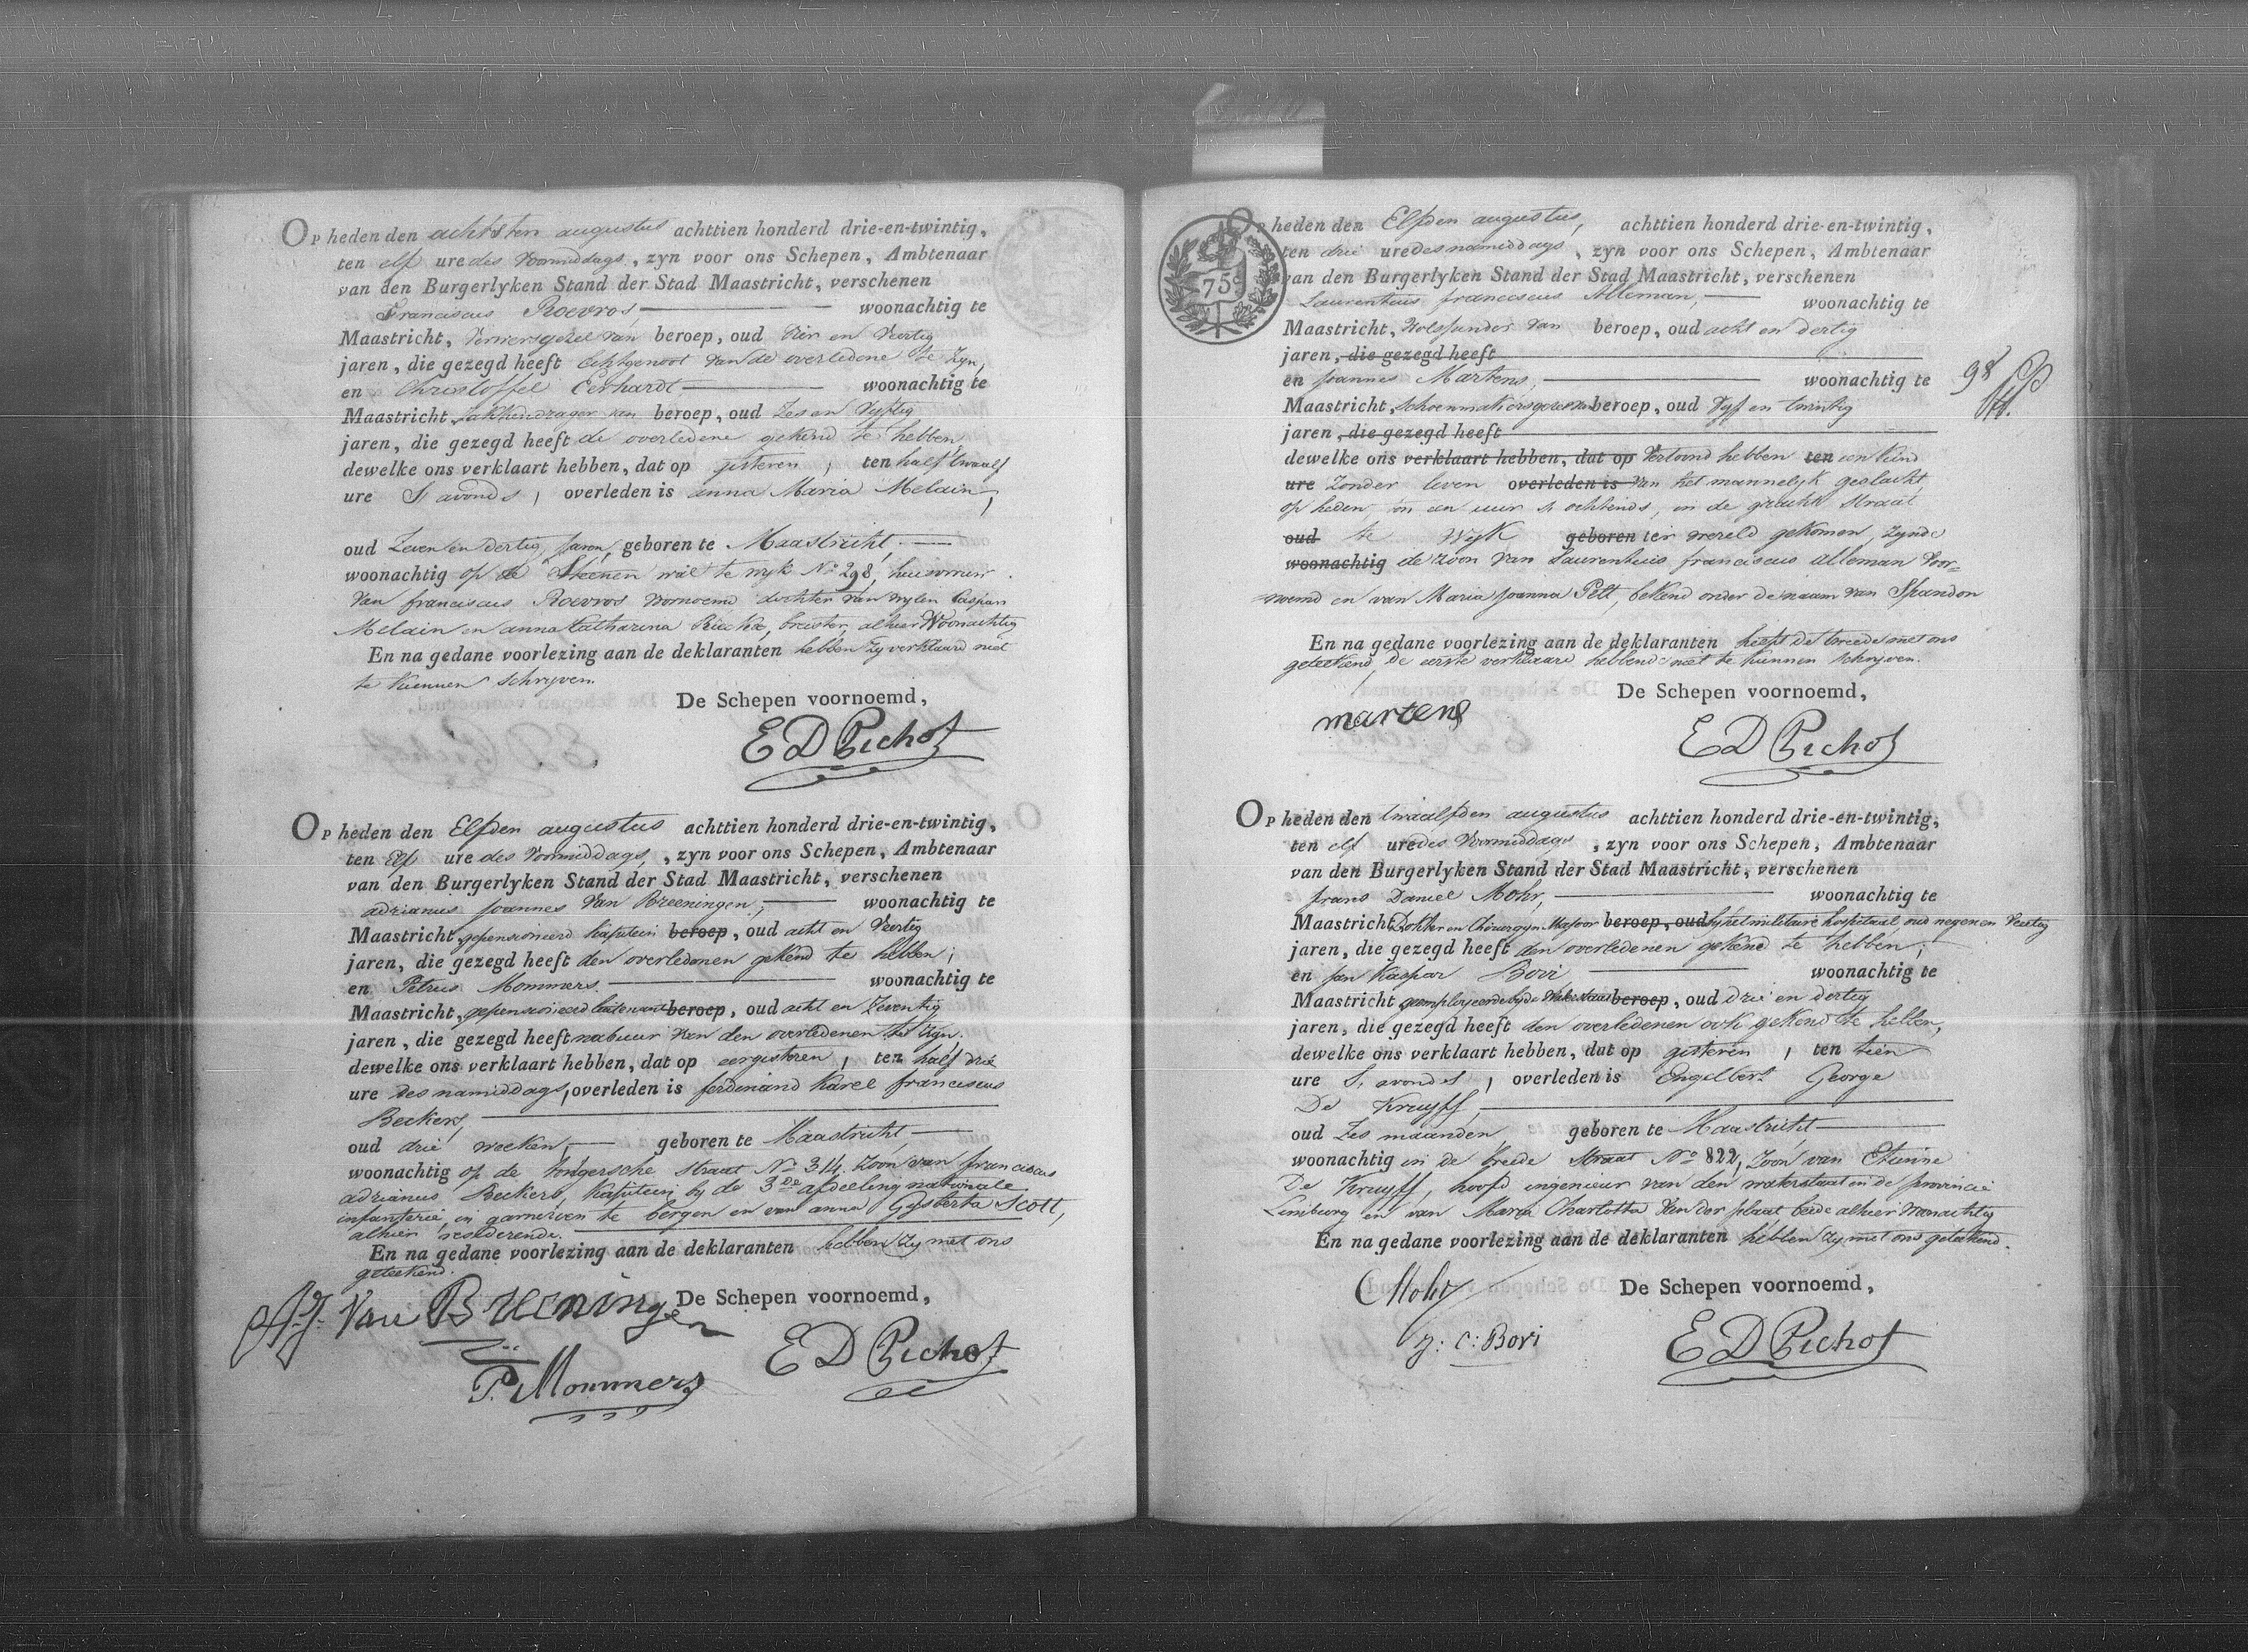 Op heden den achtsten augustus achttien honderd drie-en-twintig,
ten elf ure des voormiddags, zyn voor ons Schepen, Ambtenaar
van den Burgerlyken Stand der Stad Maastricht, verschenen
Franciscus Roevros, woonachtig te
Maastricht, Ververs gezel van beroep, oud vier en Veertig
jaren, die gezegd heeft Echtgenoot van de overledene te zyn,
en Christoffel Eerhardt woonachtig te
Maastricht, zakkendrager van beroep, oud Zes en Vyftig
jaren, die gezegd heeft de overledene gekend te hebben
dewelke ons verklaart hebben, dat op gisteren, ten half twaalf
ure S avonds, overleden is anna Maria Melain,
oud Zeven en dertig Jaren, geboren te Maastricht,
woonachtig op de Steenen wal te wyk No 298, huisvrouw
van franciscus Roevros voornoemd dochter van wylen Caspar
Melain en anna Catharina, breister, alhier Woonachtig
En na gedane voorlezing aan de deklaranten hebben zy verklaard niet
te kunnen schryven.
De Schepen voornoemd,
E D Pichot
Op heden den Elfden augustus achttien honderd drie-en-twintig,
ten Elf ure des Voormiddags, zyn voor ons Schepen, Ambtenaar
van den Burgerlyken Stand der Stad Maastricht, verschenen
adrianus Joannes Van Breeningen, woonachtig te
Maastricht, gepensioneerd kapitein beroep, oud acht en Veertig
jaren, die gezegd heeft den overledenen gekend te hebben;
en Petrus Mommers. woonachtig te
Maastricht, gepensioneerd luitenant beroep, oud acht en Zeventig
jaren, die gezegd heeft nabuur van den overledenen te zyn.
dewelke ons verklaart hebben, dat op eergisteren, ten half drie
ure des namiddags, overleden is ferdinand Karel franciscus
Beckers,
oud drie weeken, geboren te Maastricht,
woonachtig op de tongersche straat No 314. Zoon van franciscus
adrianus Beckers, Kapitein by de 3de afdeeling nationale
infanterie, in garnisoen te bergen en van anna Gysberta Scott,
alhier resederende.
En na gedane voorlezing aan de deklaranten hebben zy met ons
geteekend.
De Schepen voornoemd,
A. J. Van Breeningen
P. Mommers
E D Pichot
75 c
Op heden den Elfden augustus, achttien honderd drie-en-twintig,
ten drie ure des namiddags, zyn voor ons Schepen, Ambtenaar
van den Burgerlyken Stand der Stad Maastricht, verschenen
Laurentius franciscus Alleman, woonachtig te
Maastricht, van beroep, oud acht en dertig
jaren, die gezegd heeft
en Joannes Martens, woonachtig te
Maastricht, Schoenmakersgezel van beroep, oud Vyf en twintig
jaren, die gezegd heeft
dewelke ons verklaart hebben, dat op Vertoond hebben ten een kind
ure Zonder leven overleden is van het mannelyk geslacht,
op heden, om een uur S ochtends, in de gracht Straat
oud te Wyk geboren ter wereld gekomen, zynde
woonachtig de zoon van Laurentius franciscus alleman Voor=
noemd en van Maria Joanna Pelt, bekend onder de naam van Spandon
En na gedane voorlezing aan de deklaranten heeft de tweede met ons
geteekend, de eerste verklaard hebbende niet te kunnen schryven.
De Schepen voornoemd,
martens
E D Pichot
98
Op heden den twaalfden augustus achttien honderd drie-en-twintig,
ten elf ure des Voormiddags, zyn voor ons Schepen, Ambtenaar
van den Burgerlyken Stand der Stad Maastricht, verschenen
frans Daniel Mohr, woonachtig te
Maastricht, Dokter en Chirurgyn Majoor beroep, oud by het militaire hospitaal, oud negen en Veertig
jaren, die gezegd heeft den overledenen gekend te hebben;
en Jan Kaspar Bovi woonachtig te
Maastricht, geemployeerde by de Waterstaat beroep, oud drie en dertig
jaren, die gezegd heeft den overledenen ook gekend te hebben,
dewelke ons verklaart hebben, dat op gisteren, ten tien
ure S. avonds, overleden is Engelbert George
De Kruyff,
oud Zes maanden, geboren te Maastricht
woonachtig in de breede straat No 822, Zoon van Etienne
De Kruyff, hoofd ingenieur van den waterstaat in de provincie
Limburg en van Maria Charlotta Van der plaat beide alhier Woonachtig
En na gedane voorlezing aan de deklaranten hebben zy met ons geteekend.
De Schepen voornoemd,
Mohr
J: C: Bovi
E D Pichot